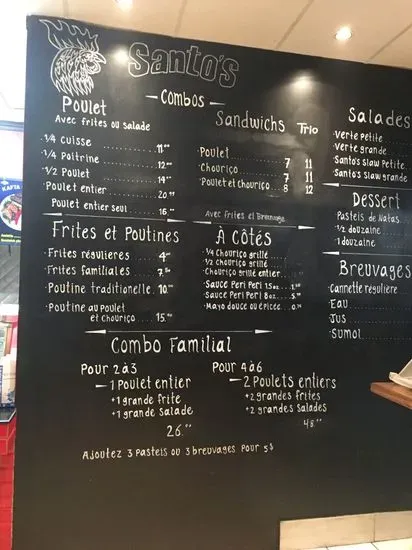 Santo's
Combos
Poulet
Avec frites ou salade
1/4 Cuisse 11.00
1/4 Poitrine 12.00
1/2 Poulet 14.00
Poulet entier 20.99
Poulet entier seul 16.00
Sandwichs Trio
Poulet 7 11
Chouriço 7 11
Poulet et Chouriço 8 12
Avec frites et Breuvage
Salades
Verte petite
Verte grande
Santo's slaw petite
Santo's slaw grande
Dessert
Pasteis de Natas
1/2 douzaine
1 douzaine
Frites et Poutines
Frites régulières 4.00
Frites familiales 7.50
Poutine traditionelle 10.00
Poutine au poulet
et chouriço 15.00
À Côtés
1/4 Chouriço grillé
1/2 chouriço grillé
Chouriço grillé entier
Sauce Peri Peri 1.5oz
Sauce Peri Peri 8 oz
Mayo douce ou épicée
Breuvages
Cannette régulière
Eau
Jus
Sumol
Combo Familial
Pour 2 à 3
1 Poulet entier
+1 grande frite
+1 grande salade
26.00
Pour 4 à 6
2 Poulets entiers
+2 grandes frites
+2 grandes salades
48.00
Ajoutez 3 pasteis ou 3 breuvages pour 5$
KAFTA